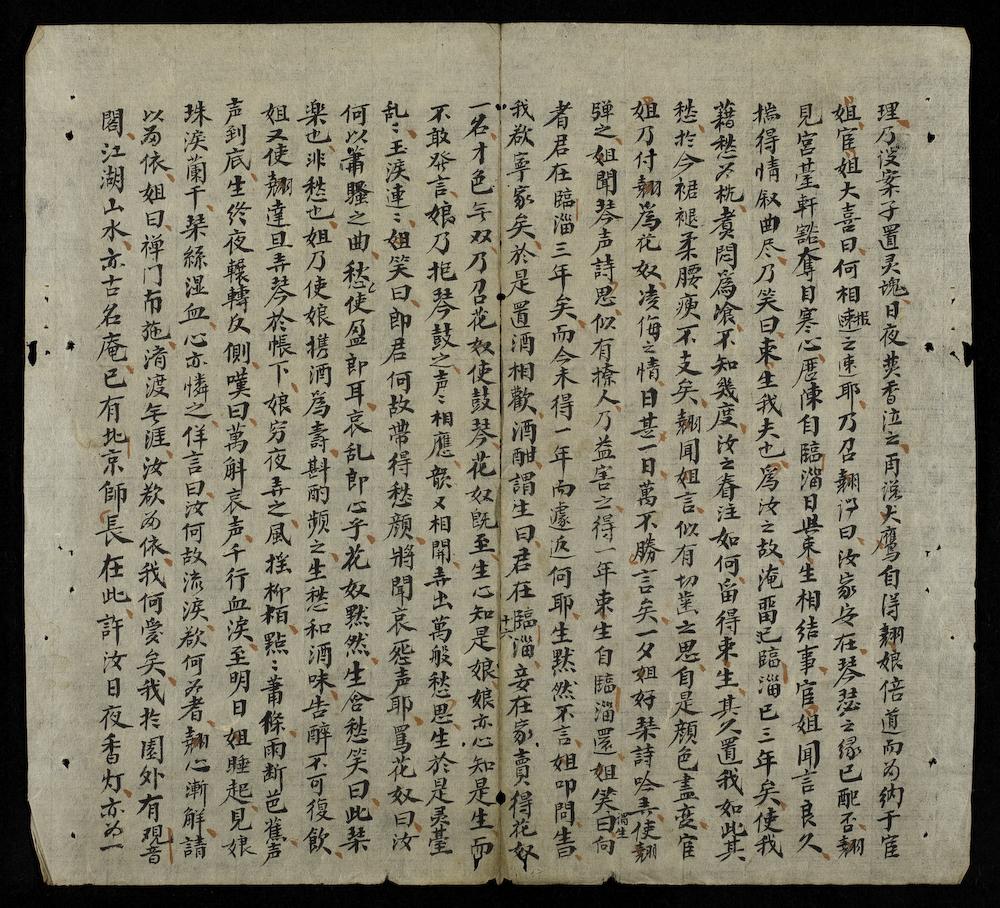 理乃設案子置灵塊日夜焚香泣之再説犬鷹自得翹娘倍道而㐌納于宦
姐宦姐大喜曰何相速報之速耶乃召翹淂曰汝家安在琴瑟之缘已配否翹
見宮䑓軒豁奪目寒心歷陳自臨淄日與束生相结事宦姐聞言良久
揣得情叙曲尽乃笑曰束生我夫也爲汝之故淹畱已臨淄已三年矣使我
藉愁为枕煑悶爲飡不知幾度汝之眷注如何畱得束生其久置我如此其
愁於今裙褪柔腰瘐不支矣翹聞姐言似有切䓾之思自是顔色盡变宦
姐乃付翹爲花奴凌侮之情日甚一日萬不勝言矣一夕姐好琹詩吟弄使翹
弹之姐聞琴声詩思似有撩人乃益害之得一年束生自臨淄還姐笑謂生曰向
者君在臨淄三年矣而今未得一年而遽返何耶生黙然不言姐叩問吿曰
我欲寧家矣於是置酒相歡酒酣謂生曰君在臨淄妾在家賣得花奴
一名才色无双乃召花奴使鼓琴花奴既至生心知是娘娘亦心知是生而
不敢發言娘乃抱琴鼓之声〻相應韻又相開弄出萬般愁思生於是灵䑓
乱〻玉淚連〻姐笑曰郎君何故帶得愁顔將聞哀怨声耶罵花奴曰汝
何以蕭騷之曲愁使盈郎耳哀乱郎心乎花奴黙然生含愁笑曰此琹
楽也非愁也姐乃使娘携酒爲壽斟酌頻之生愁和酒味告醉不可復飲
姐又使翹達旦弄琴於帳下娘穷夜弄之風摇柳栢㸃〻蕭條雨断芭蕉声
声到底生終夜轅轉反側嘆曰萬斛哀声千行血淚至明日姐睡起見娘
珠淚蘭干琹絲湿血心亦憐之佯言曰汝何故流淚欲何为者翹心漸解請
以㐌依姐曰禅门布施済渡无涯汝欲㐌依我何愛矣我於園外有覌音
閣江湖山水亦古名庵已有北京師長在此許汝日夜香灯亦㐌一
十六